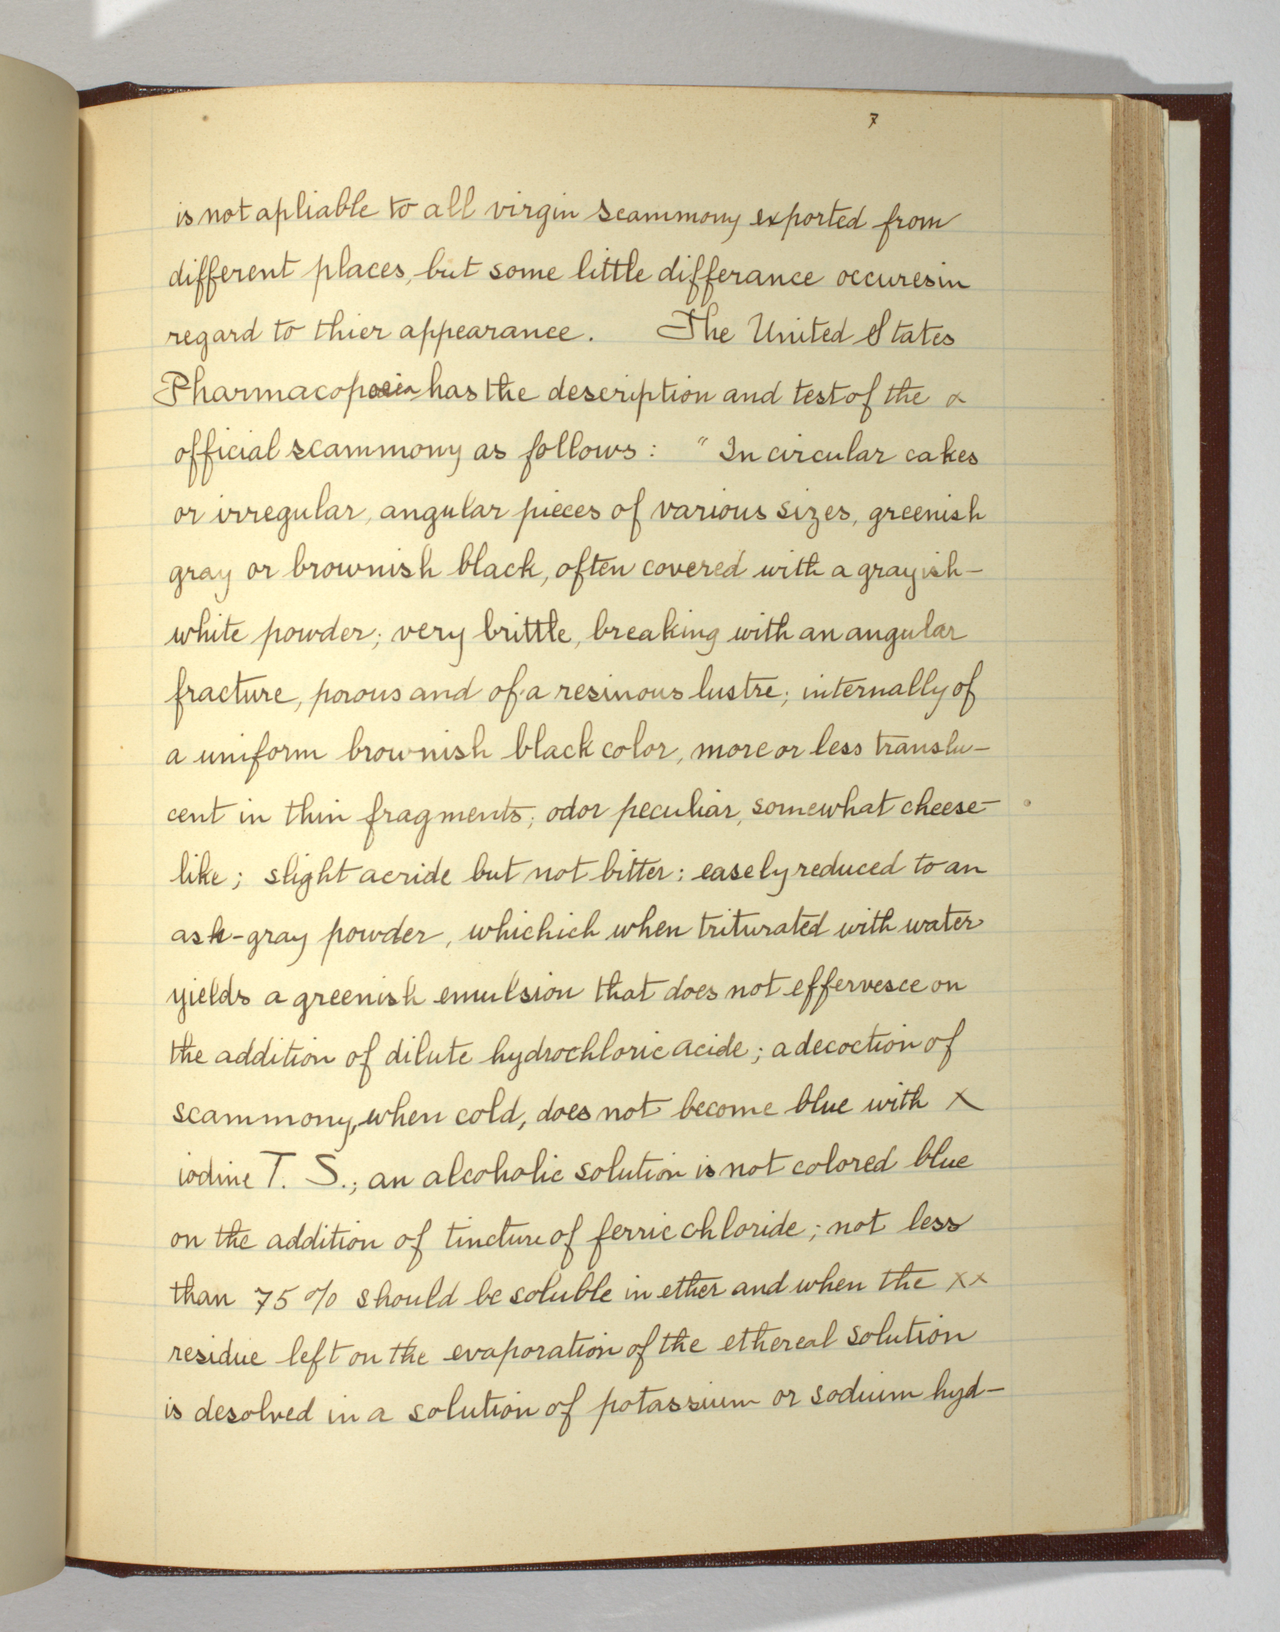 7
is not apliable to all virgin scammony exported from
different places, but some little differance occures in
regard to thier appearance. The United States
Pharmacopoeia has the description and test of the x
official scammony as follows : "In circular cakes
or irregular, angular pieces of various sizes, greenish
gray or brownish black, often covered with a grayish-
white powder; very brittle, breaking with an angular
fracture, porous and of a resinous lustre; internally of
a uniform brownish black color, more or less translu-
cent in thin fragments; odor peculiar, somewhat cheese-
like; slight acride but not bitter; easely reduced to an
ash-gray powder, whichich when triturated with water
yields a greenish emulsion that does not effervesce on
the addition of dilute hydrochloric acide; a decoction of
scammony, when cold, does not become blue with x
iodine T. S.; an alcoholic solution is not colored blue
on the addition of tincture of ferric chloride; not less
than 75% should be soluble in ether and when the xx
residue left on the evaporation of the ethereal solution
is desolved in a solution of potassium or sodium hyd-